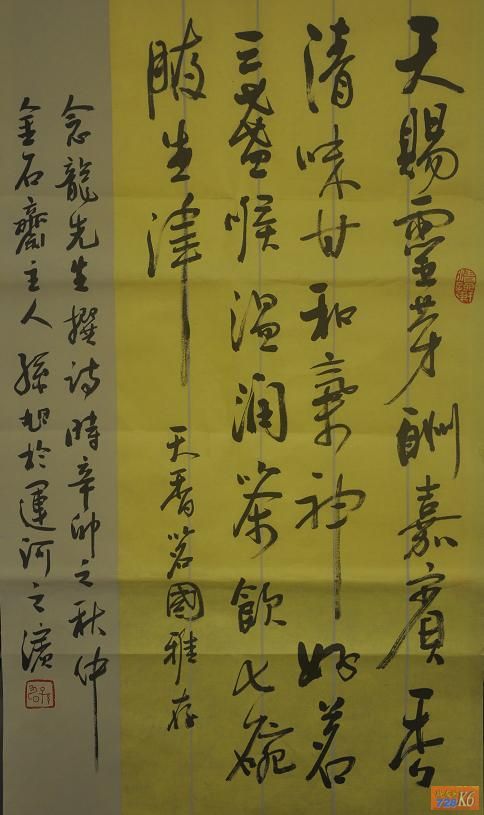 天賜靈芽酬嘉賓香
清味甘和氣神好茗
三盞喉溫潤茶飲七碗
腋生津
天香茗國雅存
念龍先生撰詩時辛卯之秋仲
金石齋主人孫旭於運河之濱
728 K6